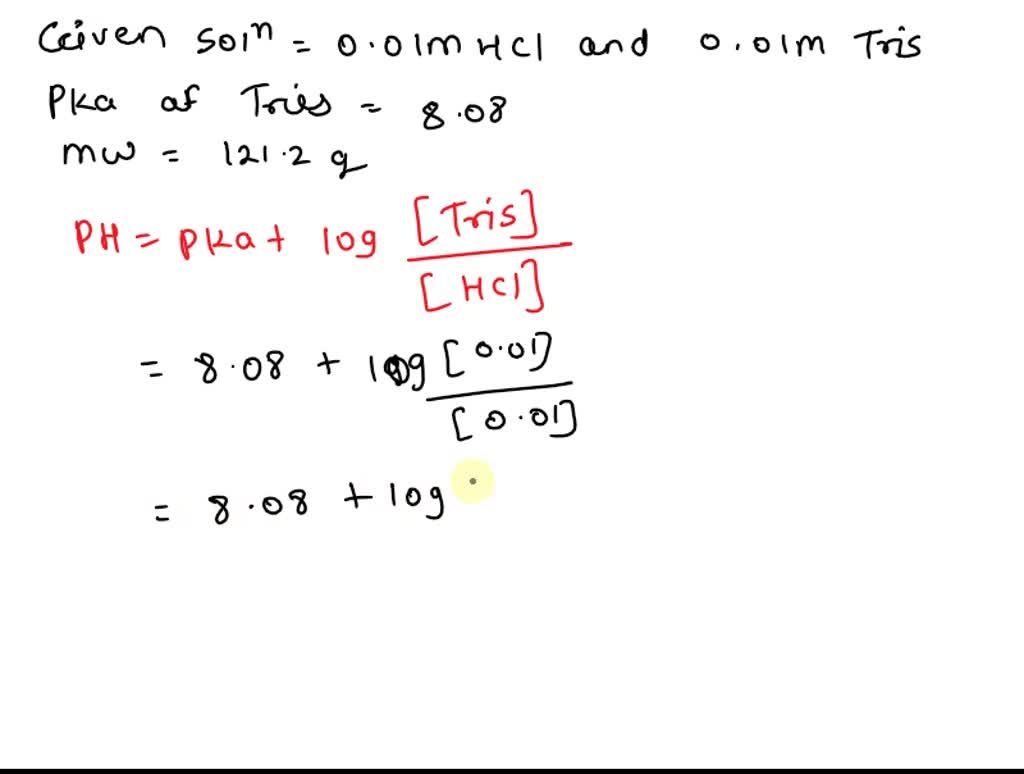 Given soln = 0.01M HCl and 0.01M Tris
Pka of Tries = 8.08
mw = 121.2 g
PH = Pka + log [Tris]
[HCl]
= 8.08 + log [0.01]
[0.01]
= 8.08 + log